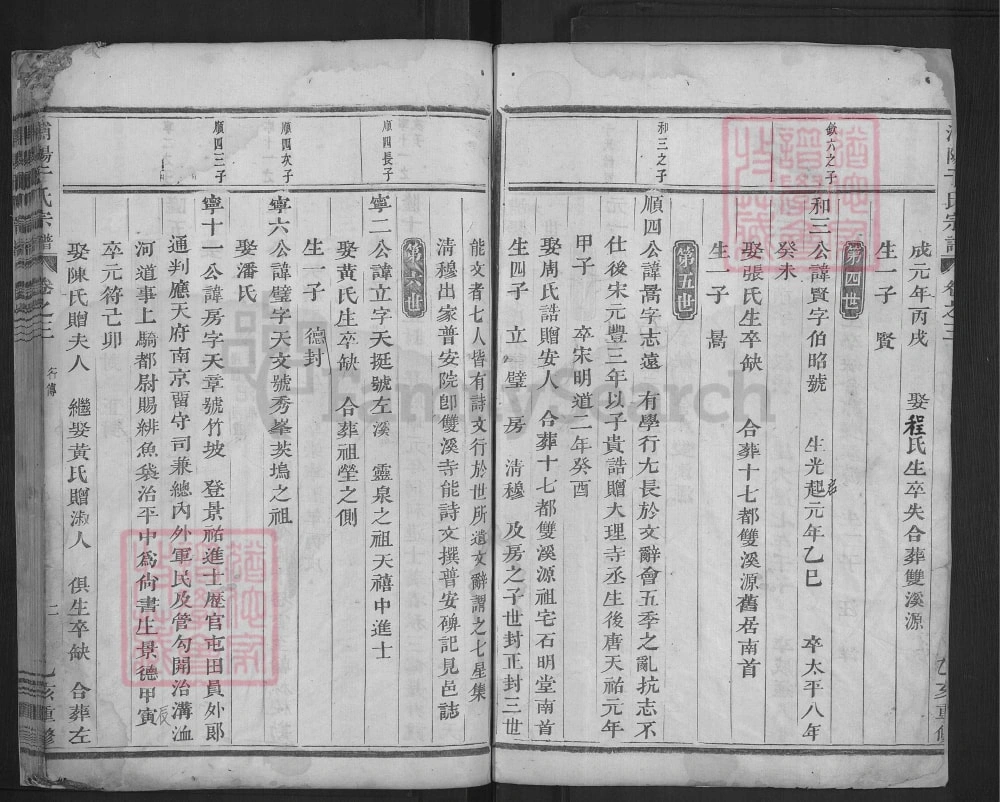 成元年丙戌 娶程氏生卒失合葬雙溪源
生一子 賢
第四世
欽六之子
和三公諱賢字伯昭號 生光起元年乙巳 卒太平八年
癸未
娶張氏生卒缺 合葬十七都雙溪源舊居南首
生一子 暠
第五世
和三之子
順四公諱暠字志遠 有學行尢長於文辭會五季之亂抗志不
仕後宋元豐三年以子貴誥贈大理寺丞生後唐天祐元年
甲子 卒宋明道二年癸酉
娶周氏誥贈安人 合葬十七都雙溪源祖宅石明堂南首
生四子 立 璧 房 清穆 及房之子世封正封三世
能文者七人皆有詩文行於世所遺文辭謂之七星集
清穆出家普安院卽雙溪寺能詩文撰普安碑記見邑誌
第六世
順四長子
寜二公諱立字天挺號左溪 靈泉之祖天禧中進士
娶黃氏生卒缺 合葬祖塋之側
生一子 德封
順四次子
寜六公諱璧字天文號秀峯芙塢之祖
娶潘氏
順四三子
寜十一公諱房字天章號竹坡 登景祐進士歷官屯田員外郞
通判應天府南京留守司兼總內外軍民及管勾開治溝洫
河道事上騎都尉賜緋魚袋治平中爲尙書生景德甲寅
卒元符己卯
娶陳氏贈夫人 繼娶黃氏贈淑人 俱生卒缺 合葬左
氏宗譜 卷之三 行傳 二 乙亥重修